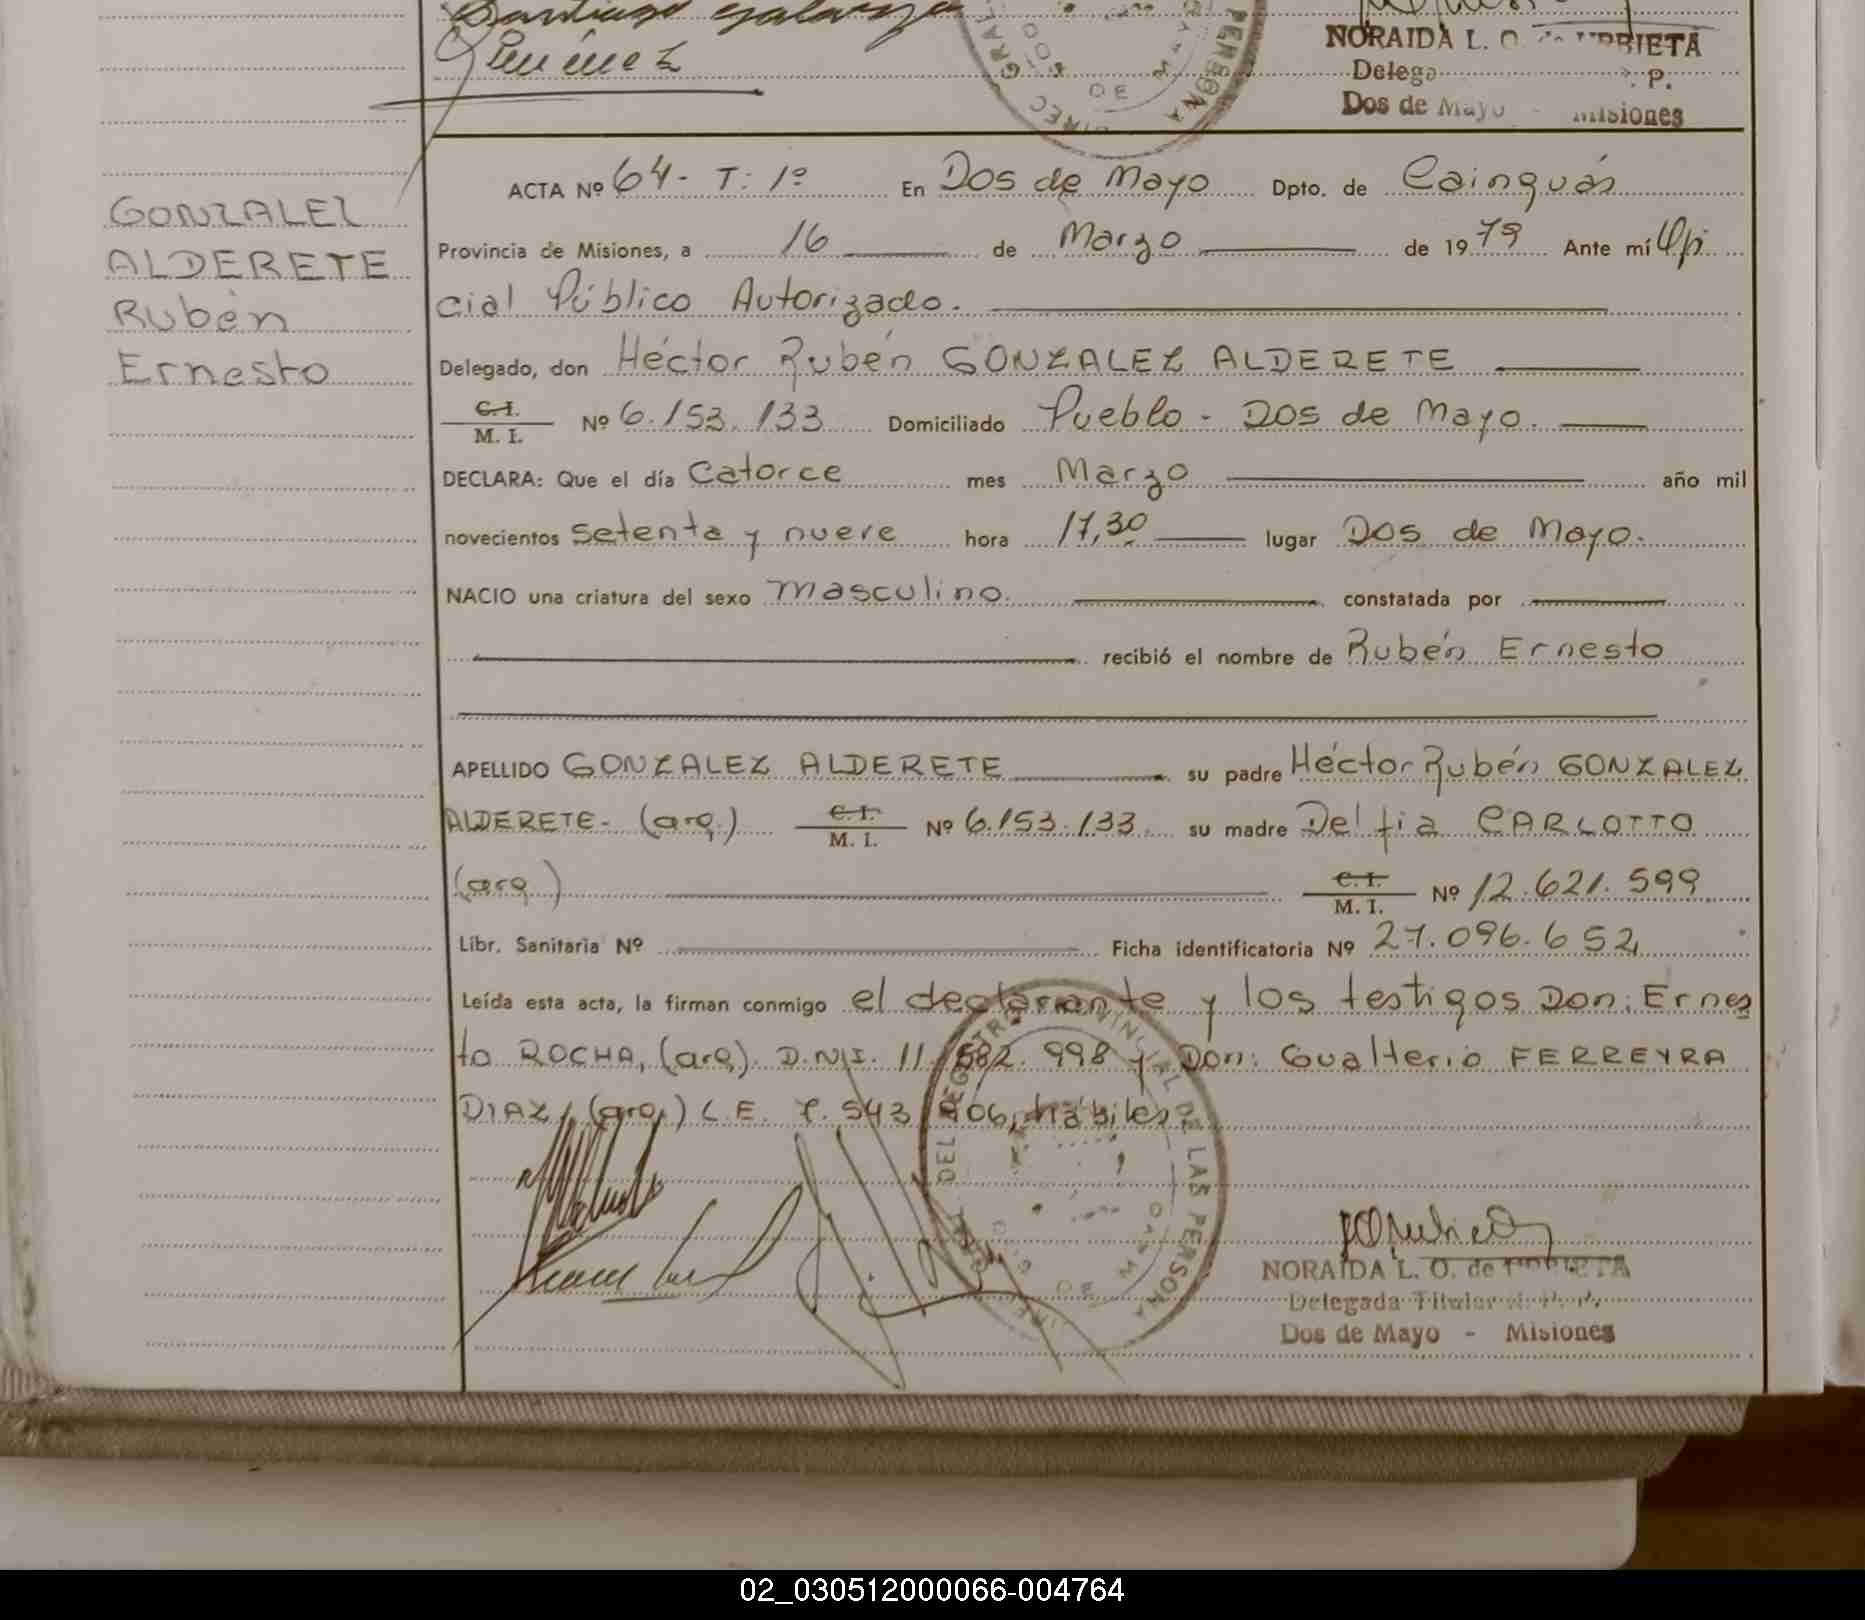 Santiago Galarza
Giménez
NORAIDA L. O. de URRIETA
Delega P.
Dos de Mayo - Misiones
ACTA Nº 64- T: 1º En Dos de Mayo Dpto. de Cainguás
GONZALEZ
ALDERETE
Rubén
Ernesto
Provincia de Misiones, a 16 de Marzo de 1979 Ante mí Ofi
cial Público Autorizado.
Delegado, don Héctor Rubén GONZALEZ ALDERETE
C.I.
M. I. Nº 6.153.133 Domiciliado Pueblo - Dos de Mayo.
DECLARA: Que el día Catorce mes Marzo año mil
novecientos setenta y nueve hora 17,30 lugar Dos de Mayo.
NACIO una criatura del sexo masculino. constatada por
recibió el nombre de Rubén Ernesto
APELLIDO GONZALEZ ALDERETE su padre Héctor Rubén GONZALEZ
ALDERETE- (arg.) C.I. M. I. Nº 6.153.133. su madre Delfia CARLOTTO
(arg.) C.I. M. I. Nº 12.621.599
Libr. Sanitaria Nº Ficha identificatoria Nº 27.096.652
Leída esta acta, la firman conmigo el declarante y los testigos Don: Ernes
to ROCHA, (arg.) D.N.I. 11.682.998 y Don: Gualterio FERREYRA
DIAZ, (arg.) L.E. 7.543.906, hábiles.
DEL REGISTRO PROVINCIAL DE LAS PERSONA
NORAIDA L. O. de URRIETA
Delegada Titular R. P. P.
Dos de Mayo - Misiones
02_030512000066-004764